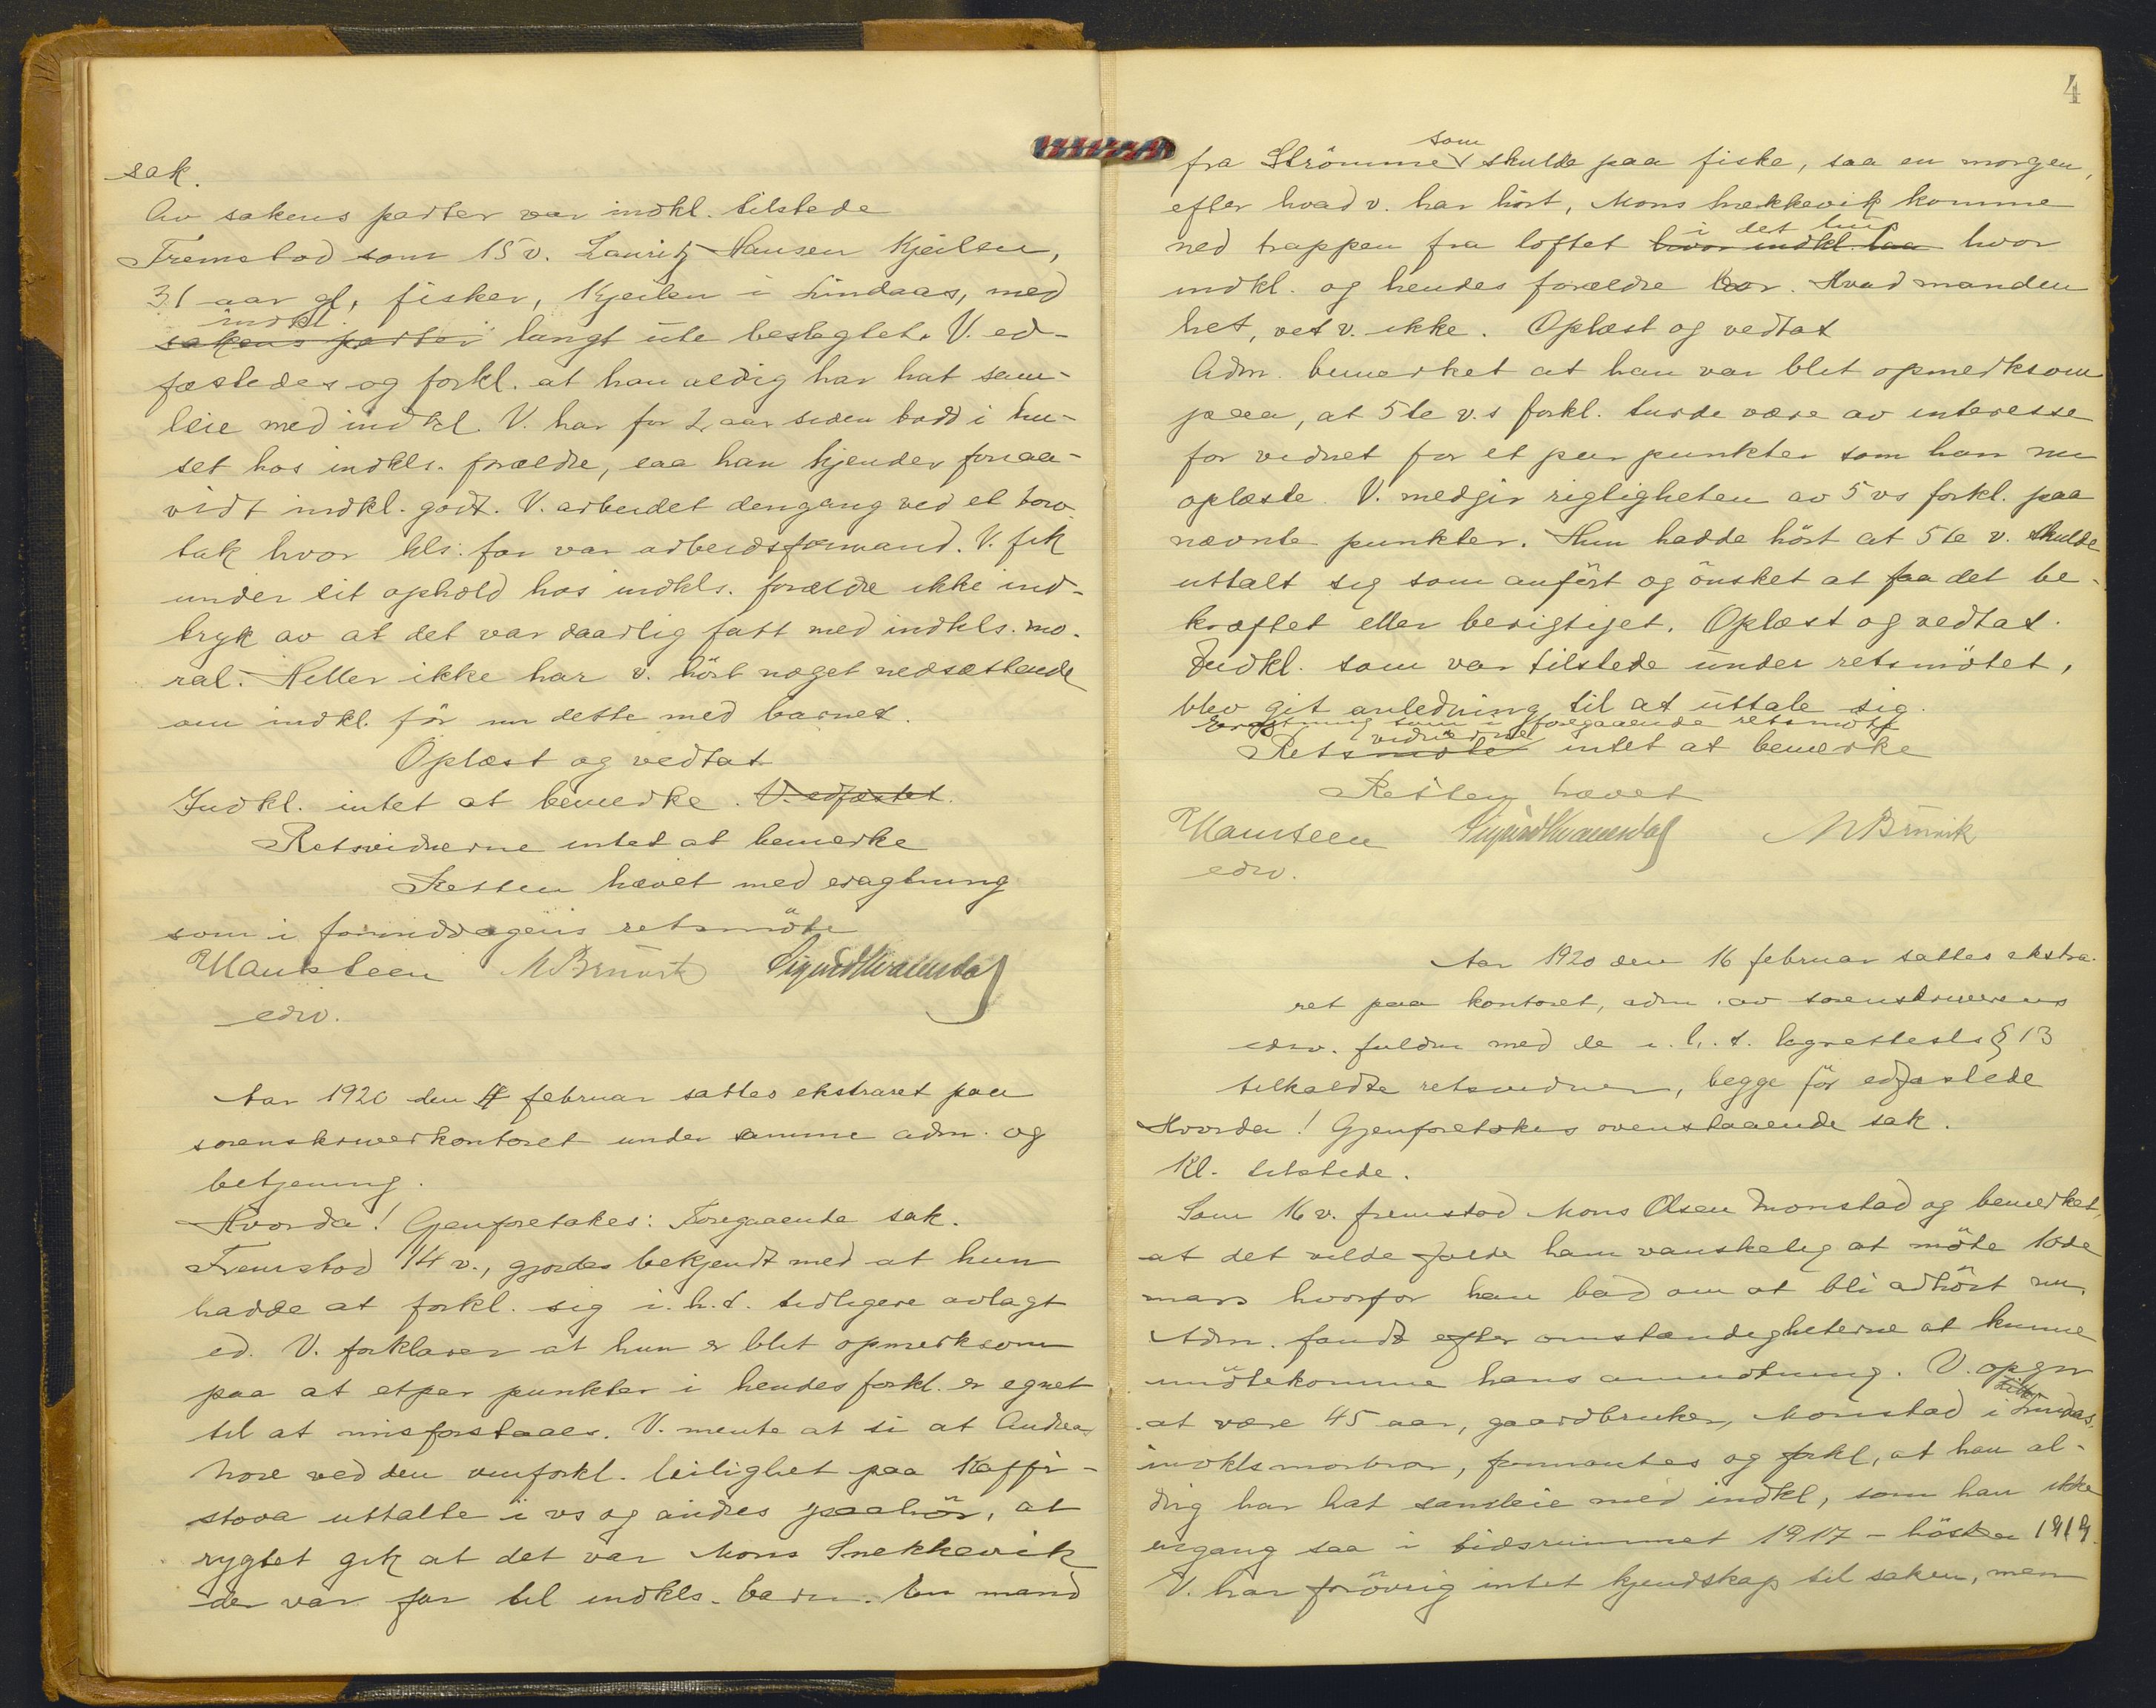 sak.
Av sakens parter var indkl. tilstede
Fremstod som 15 v. Lauritz Hansen Kjeilen,
31 aar gl, fisker, Kjeilen i Lindaas, med
indkl.
sakens parter langt ute beslegtet. V. ed-
fæstedes og forkl. at han aldrig har hat sam-
leie med indkl. V. har for 2 aar siden bodd i hu-
set hos indkls. forældre, saa han kjender forsaa-
vidt indkl. godt. V. arbeidet dengang ved et torv-
tak hvor kls. far var arbeidsformand. V. fik
under sit ophold hos indkls. forældre ikke ind-
tryk av at det var daarlig fatt med indkls. mo-
ral. Heller ikke har v. hört noget nedsættende
om indkl. för nu dette med barnet.
Oplæst og vedtat
Indkl. intet at bemerke. V. edfæstet.
Retsvidnerne intet at bemerke
Retten hævet med eragtning
som i formiddagens retsmöte
Hansteen M Brunvik Sigurd Kvalendal
edsv.
Aar 1920 den 4 februar sattes ekstraret paa
sorenskriverkontoret under samme adm. og
betjening.
Hvorda! Gjenforetakes: Foregaaende sak.
Fremstod 14 v., gjordes bekjendt med at hun
hadde at forkl. sig i. h. t. tidligere avlagt
ed. V. forklarer at hun er blit opmerksom
paa at etpar punkter i hendes forkl. er egnet
til at misforstaaes. V. mente at si at Andrea
hore ved den omforkl. leilighet paa Kaffi-
stova uttalte i vs og andres paahör, at
rygtet gik at det var Mons Snekkevik
der var far til indkls. barn. En mand
4
som
fra Strömme skulde paa fiske, saa en morgen,
efter hvad v. har hört, Mons Snekkevik komme
i det hus
ned trappen fra loftet hvor indkl. laa hvor
indkl. og hendes forældre bor. Hvad manden
het, vet v. ikke. Oplæst og vedtat
Adm. bemerket at han var blit opmerksom
paa, at 5te v.s forkl. turde være av interesse
for vidnet for et par punkter som han nu
oplæste. V. medgir rigtigheten av 5 vs forkl. paa
nævnte punkter. Hun hadde hört at 5te v. skulde
uttalt sig som anfört og önsket at faa det be-
kræftet eller berigtiget. Oplæst og vedtat.
Indkl. som var tilstede under retsmötet,
blev git anledning til at uttale sig.
Eragtning som i foregaaende retsmöte
vidnerne
Retsmöte intet at bemerke
Retten hævet
Hansteen Sigurd Kvalendal M Brunvik
edsv.
Aar 1920 den 16 februar sattes ekstra-
ret paa kontoret, adm. av sorenskriverens
edsv. fuldm med de i. h. t. lagrettesls § 13
tilkaldte retsvidner, begge för edfæstede
Hvorda! Gjenforetokes ovenstaaende sak.
Kl. tilstede.
Som 16 v. fremstod Mons Olsen Monstad og bemerket,
at det vilde falde ham vanskelig at möte 10de
mars hvorfor han bad om at bli avhört nu.
Adm. fandt efter omstændigheterne at kunne
imötekomme hans anmodning. V. opgir
at være 45 aar, gaardbruker, Monstad i Lindas,
indkls morbror, formantes og forkl, at han al-
drig har hat samleie med indkl, som han ikke
engang saa i tidsrummet 1917 – hösten 1919.
V. har forövrig intet kjendskap til saken, men